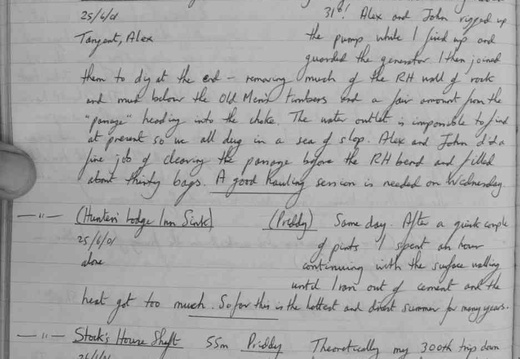 25/6/01 31°! Alex and John rigged up
Tangent, Alex the pump while I fired up and
guarded the generator. I then joined
them to dig at the end - removing much of the RH wall of rock
and mud below the Old Mens' timbers and a fair amount from the
"passage" heading into the choke. The water outlet is impossible to find
at present so we all dug in a sea of slop. Alex and John did a
fine job of clearing the passage before the RH bend and filled
about thirty bags. A good hauling session is needed on Wednesday.
—"— (Hunters' Lodge Inn Sink) (Priddy) Same day. After a quick couple
25/6/01 of pints I spent an hour
alone continuing with the surface walling
until I ran out of cement and the
heat got too much. So far this is the hottest and driest summer for many years.
—"— Stock's House Shaft 55m Priddy Theoretically my 300th trip down